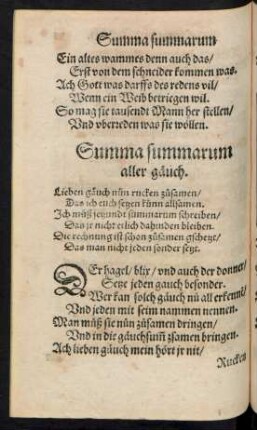 Summa summarum
Ein altes wammes denn auch das/
Erst von dem schneider kommen was.
Ach Gott was darffs des redens vil/
Wenn ein Weib betriegen wil.
So mag sie tausendt Mann her stellen/
Vnd vberreden was sie wöllen.
Summa summarum
aller gäuch.
Lieben gäuch nůn rucken zůsamen/
Das ich euch setzen künn allsamen.
Ich můß jetzundt summarum schreiben/
Das jr nicht etlich dahinden bleiben.
Die rechnung ist schon zůsamen gschetzt/
Das man nicht jeden sonder setzt.
Der hagel/ blix/ vnd auch der donner/
Setze jeden gauch besonder.
Wer kan solch gäuch nů all erkennen/
Vnd jeden mit seim nammen nennen.
Man můß sie nůn zůsamen dringen/
Vnd in die gäuchsum̃ zsamen bringen.
Ach lieben gäuch mein hört jr nit/
Rucken